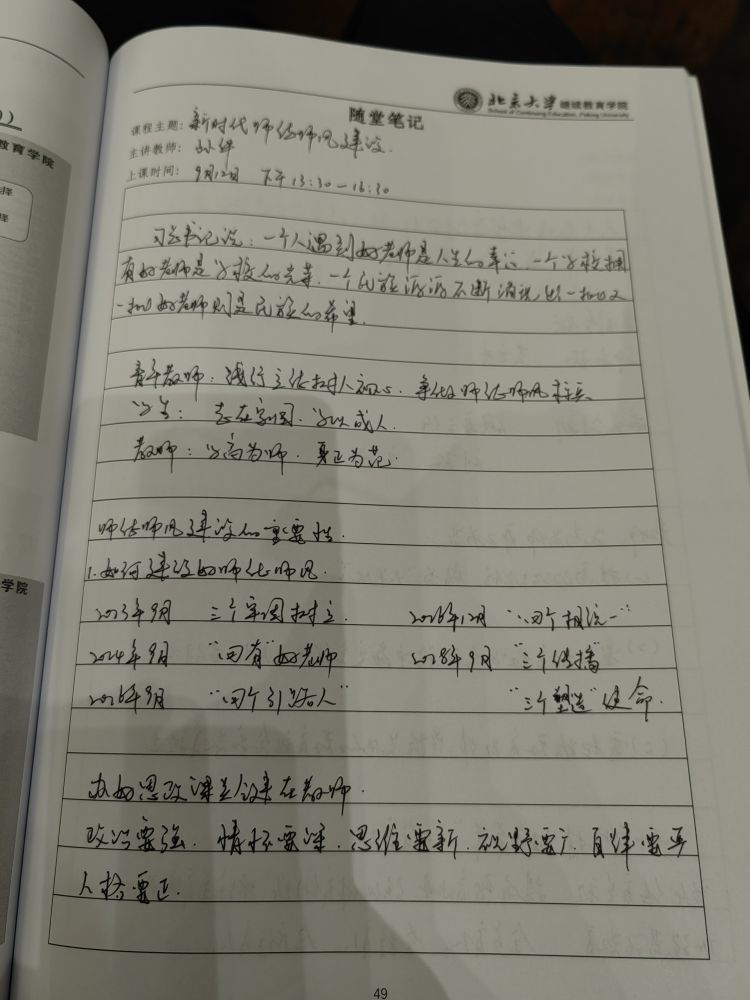 北京大学 继续教育学院
School of Continuing Education, Peking University
随堂笔记
课程主题：新时代师德师风建设.
主讲教师：孙华
上课时间：9月12日 下午13:30—16:30
习总书记说：一个人遇到好老师是人生的幸运，一个学校拥
有好老师是学校的光荣，一个民族源源不断涌现出一批又
一批好老师则是民族的希望.
青年教师：践行立德树人初心，争做师德师风标兵
学生：志在家国，学以成人.
教师：学高为师，身正为范.
师德师风建设的重要性.
1.如何建设好师德师风.
2013年9月 三个牢固树立. 2016年12月 “四个相统一”
2014年9月 “四有”好老师 2018年9月 “三个传播”
2016年9月 “四个引路人” “三个塑造”使命.
办好思政课关键在教师.
政治要强，情怀要深，思维要新，视野要广，自律要严
人格要正.
49
教育学院
学院